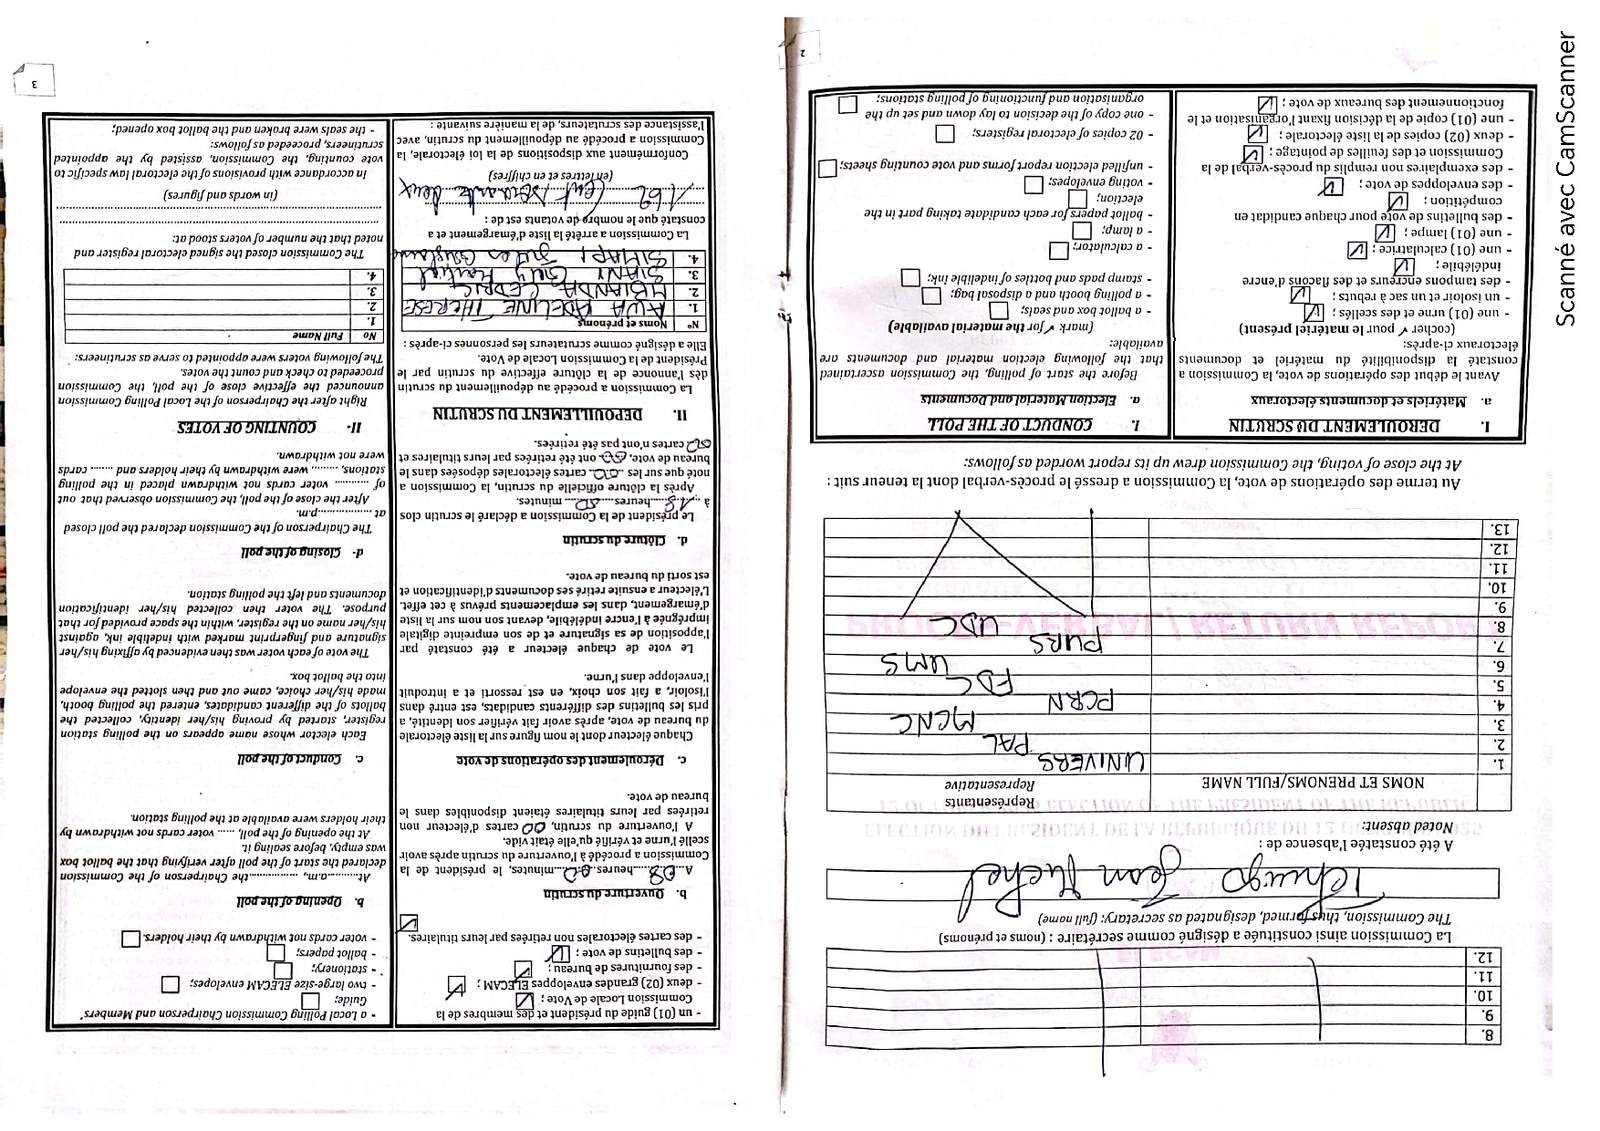 8.
9.
10.
11.
12.
La Commission ainsi constituée a désigné comme secrétaire : (noms et prénoms)
The Commission, thus formed, designated as secretary: (full name)
Jean Michel
A été constatée l'absence de :
Noted absent:
NOMS ET PRÉNOMS/FULL NAME
Représentants
Representative
1. UNIVERS
2. PAL
3. MCNC
4. PCRN
5. FDC
6. UMS
7. PURS
8. UDC
9.
10.
11.
12.
13.
Au terme des opérations de vote, la Commission a dressé le procès-verbal dont la teneur suit :
At the close of voting, the Commission drew up its report worded as follows:
I. DEROULEMENT DU SCRUTIN
a. Matériels et documents électoraux
Avant le début des opérations de vote, la Commission a
constaté la disponibilité du matériel et documents
électoraux ci-après:
(cocher ✓ pour le matériel présent)
- une (01) urne et des scellés ;
- un isoloir et un sac à rebuts ;
- des tampons encreurs et des flacons d'encre
indélébile ;
- une (01) calculatrice ;
- une (01) lampe ;
- des bulletins de vote pour chaque candidat en
compétition ;
- des enveloppes de vote ;
- des exemplaires non remplis du procès-verbal de la
Commission et des feuilles de pointage ;
- deux (02) copies de la liste électorale ;
- une (01) copie de la décision fixant l'organisation et le
fonctionnement des bureaux de vote ;
I. CONDUCT OF THE POLL
a. Election Material and Documents
Before the start of polling, the Commission ascertained
that the following election material and documents are
available:
(mark ✓ for the material available)
- a ballot box and seals;
- a polling booth and a disposal bag;
- stamp pads and bottles of indelible ink;
- a calculator;
- a lamp;
- ballot papers for each candidate taking part in the
election;
- voting envelopes;
- unfilled election report forms and vote counting sheets;
- 02 copies of electoral registers;
- one copy of the decision to lay down and set up the
organisation and functioning of polling stations;
2
- un (01) guide du président et des membres de la
Commission Locale de Vote ;
- deux (02) grandes enveloppes ELECAM ;
- des fournitures de bureau ;
- des bulletins de vote ;
- des cartes électorales non retirées par leurs titulaires.
b. Ouverture du scrutin
A 08 heures 00 minutes, le président de la
Commission a procédé à l'ouverture du scrutin après avoir
scellé l'urne et vérifié qu'elle était vide.
A l'ouverture du scrutin, 00 cartes d'électeur non
retirées par leurs titulaires étaient disponibles dans le
bureau de vote.
c. Déroulement des opérations de vote
Chaque électeur dont le nom figure sur la liste électorale
du bureau de vote, après avoir fait vérifier son identité, a
pris les bulletins des différents candidats, est entré dans
l'isoloir, a fait son choix, en est ressorti et a introduit
l'enveloppe dans l'urne.
Le vote de chaque électeur a été constaté par
l'apposition de sa signature et de son empreinte digitale
imprégnée à l'encre indélébile, devant son nom sur la liste
d'émargement, dans les emplacements prévus à cet effet.
L'électeur a ensuite retiré ses documents d'identification et
est sorti du bureau de vote.
d. Clôture du scrutin
Le président de la Commission a déclaré le scrutin clos
à 18 heures 00 minutes.
Après la clôture officielle du scrutin, la Commission a
noté que sur les 00 cartes électorales déposées dans le
bureau de vote, 00 ont été retirées par leurs titulaires et
00 cartes n'ont pas été retirées.
II. DEPOUILLEMENT DU SCRUTIN
La Commission a procédé au dépouillement du scrutin
dès l'annonce de la clôture effective du scrutin par le
Président de la Commission Locale de Vote.
Elle a désigné comme scrutateurs les personnes ci-après :
N° Noms et prénoms
1. AWA ADELINE THERESE
2. MBIANDA CEDRIC
3. SIANI Guy Martial
4. SIMAPI Jules
La Commission a arrêté la liste d'émargement et a
constaté que le nombre de votants est de :
162 (Cent soixante deux
(en lettres et en chiffres)
Conformément aux dispositions de la loi électorale, la
Commission a procédé au dépouillement du scrutin, avec
l'assistance des scrutateurs, de la manière suivante :
- a Local Polling Commission Chairperson and Members'
Guide;
- two large-size ELECAM envelopes;
- stationery;
- ballot papers;
- voter cards not withdrawn by their holders.
b. Opening of the poll
At............a.m, ............the Chairperson of the Commission
declared the start of the poll after verifying that the ballot box
was empty, before sealing it.
At the opening of the poll, ...... voter cards not withdrawn by
their holders were available at the polling station.
c. Conduct of the poll
Each elector whose name appears on the polling station
register, started by proving his/her identity, collected the
ballots of the different candidates, entered the polling booth,
made his/her choice, came out and then slotted the envelope
into the ballot box.
The vote of each voter was then evidenced by affixing his/her
signature and fingerprint marked with indelible ink, against
his/her name on the register, within the space provided for that
purpose. The voter then collected his/her identification
documents and left the polling station.
d- Closing of the poll
The Chairperson of the Commission declared the poll closed
at ..................p.m.
After the close of the poll, the Commission observed that out
of .......... voter cards not withdrawn placed in the polling
stations, ......... were withdrawn by their holders and ....... cards
were not withdrawn.
II- COUNTING OF VOTES
Right after the Chairperson of the Local Polling Commission
announced the effective close of the poll, the Commission
proceeded to check and count the votes.
The following voters were appointed to serve as scrutineers:
No Full Name
1.
2.
3.
4.
The Commission closed the signed electoral register and
noted that the number of voters stood at:
(in words and figures)
In accordance with provisions of the electoral law specific to
vote counting, the Commission, assisted by the appointed
scrutineers, proceeded as follows:
- the seals were broken and the ballot box opened;
3
Scanné avec CamScanner